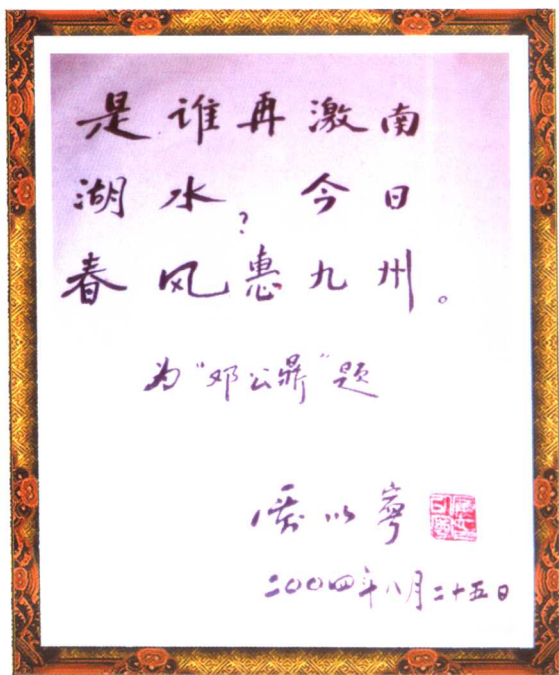 是谁再激南
湖水？今日
春风惠九州。
为“邓公鼎”题
厉以宁
二〇〇四年八月二十五日